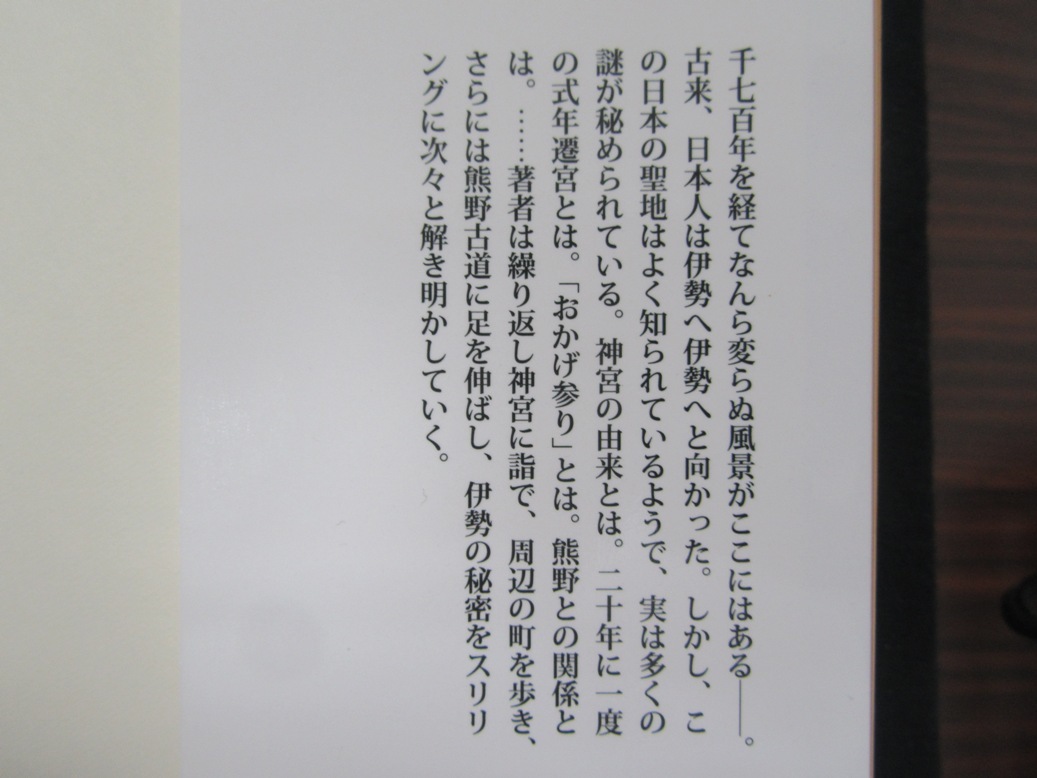 千七百年を経てなんら変らぬ風景がここにはある――。
古来、日本人は伊勢へ伊勢へと向かった。しかし、こ
の日本の聖地はよく知られているようで、実は多くの
謎が秘められている。神宮の由来とは。二十年に一度
の式年遷宮とは。「おかげ参り」とは。熊野との関係と
は。……著者は繰り返し神宮に詣で、周辺の町を歩き、
さらには熊野古道に足を伸ばし、伊勢の秘密をスリリ
ングに次々と解き明かしていく。